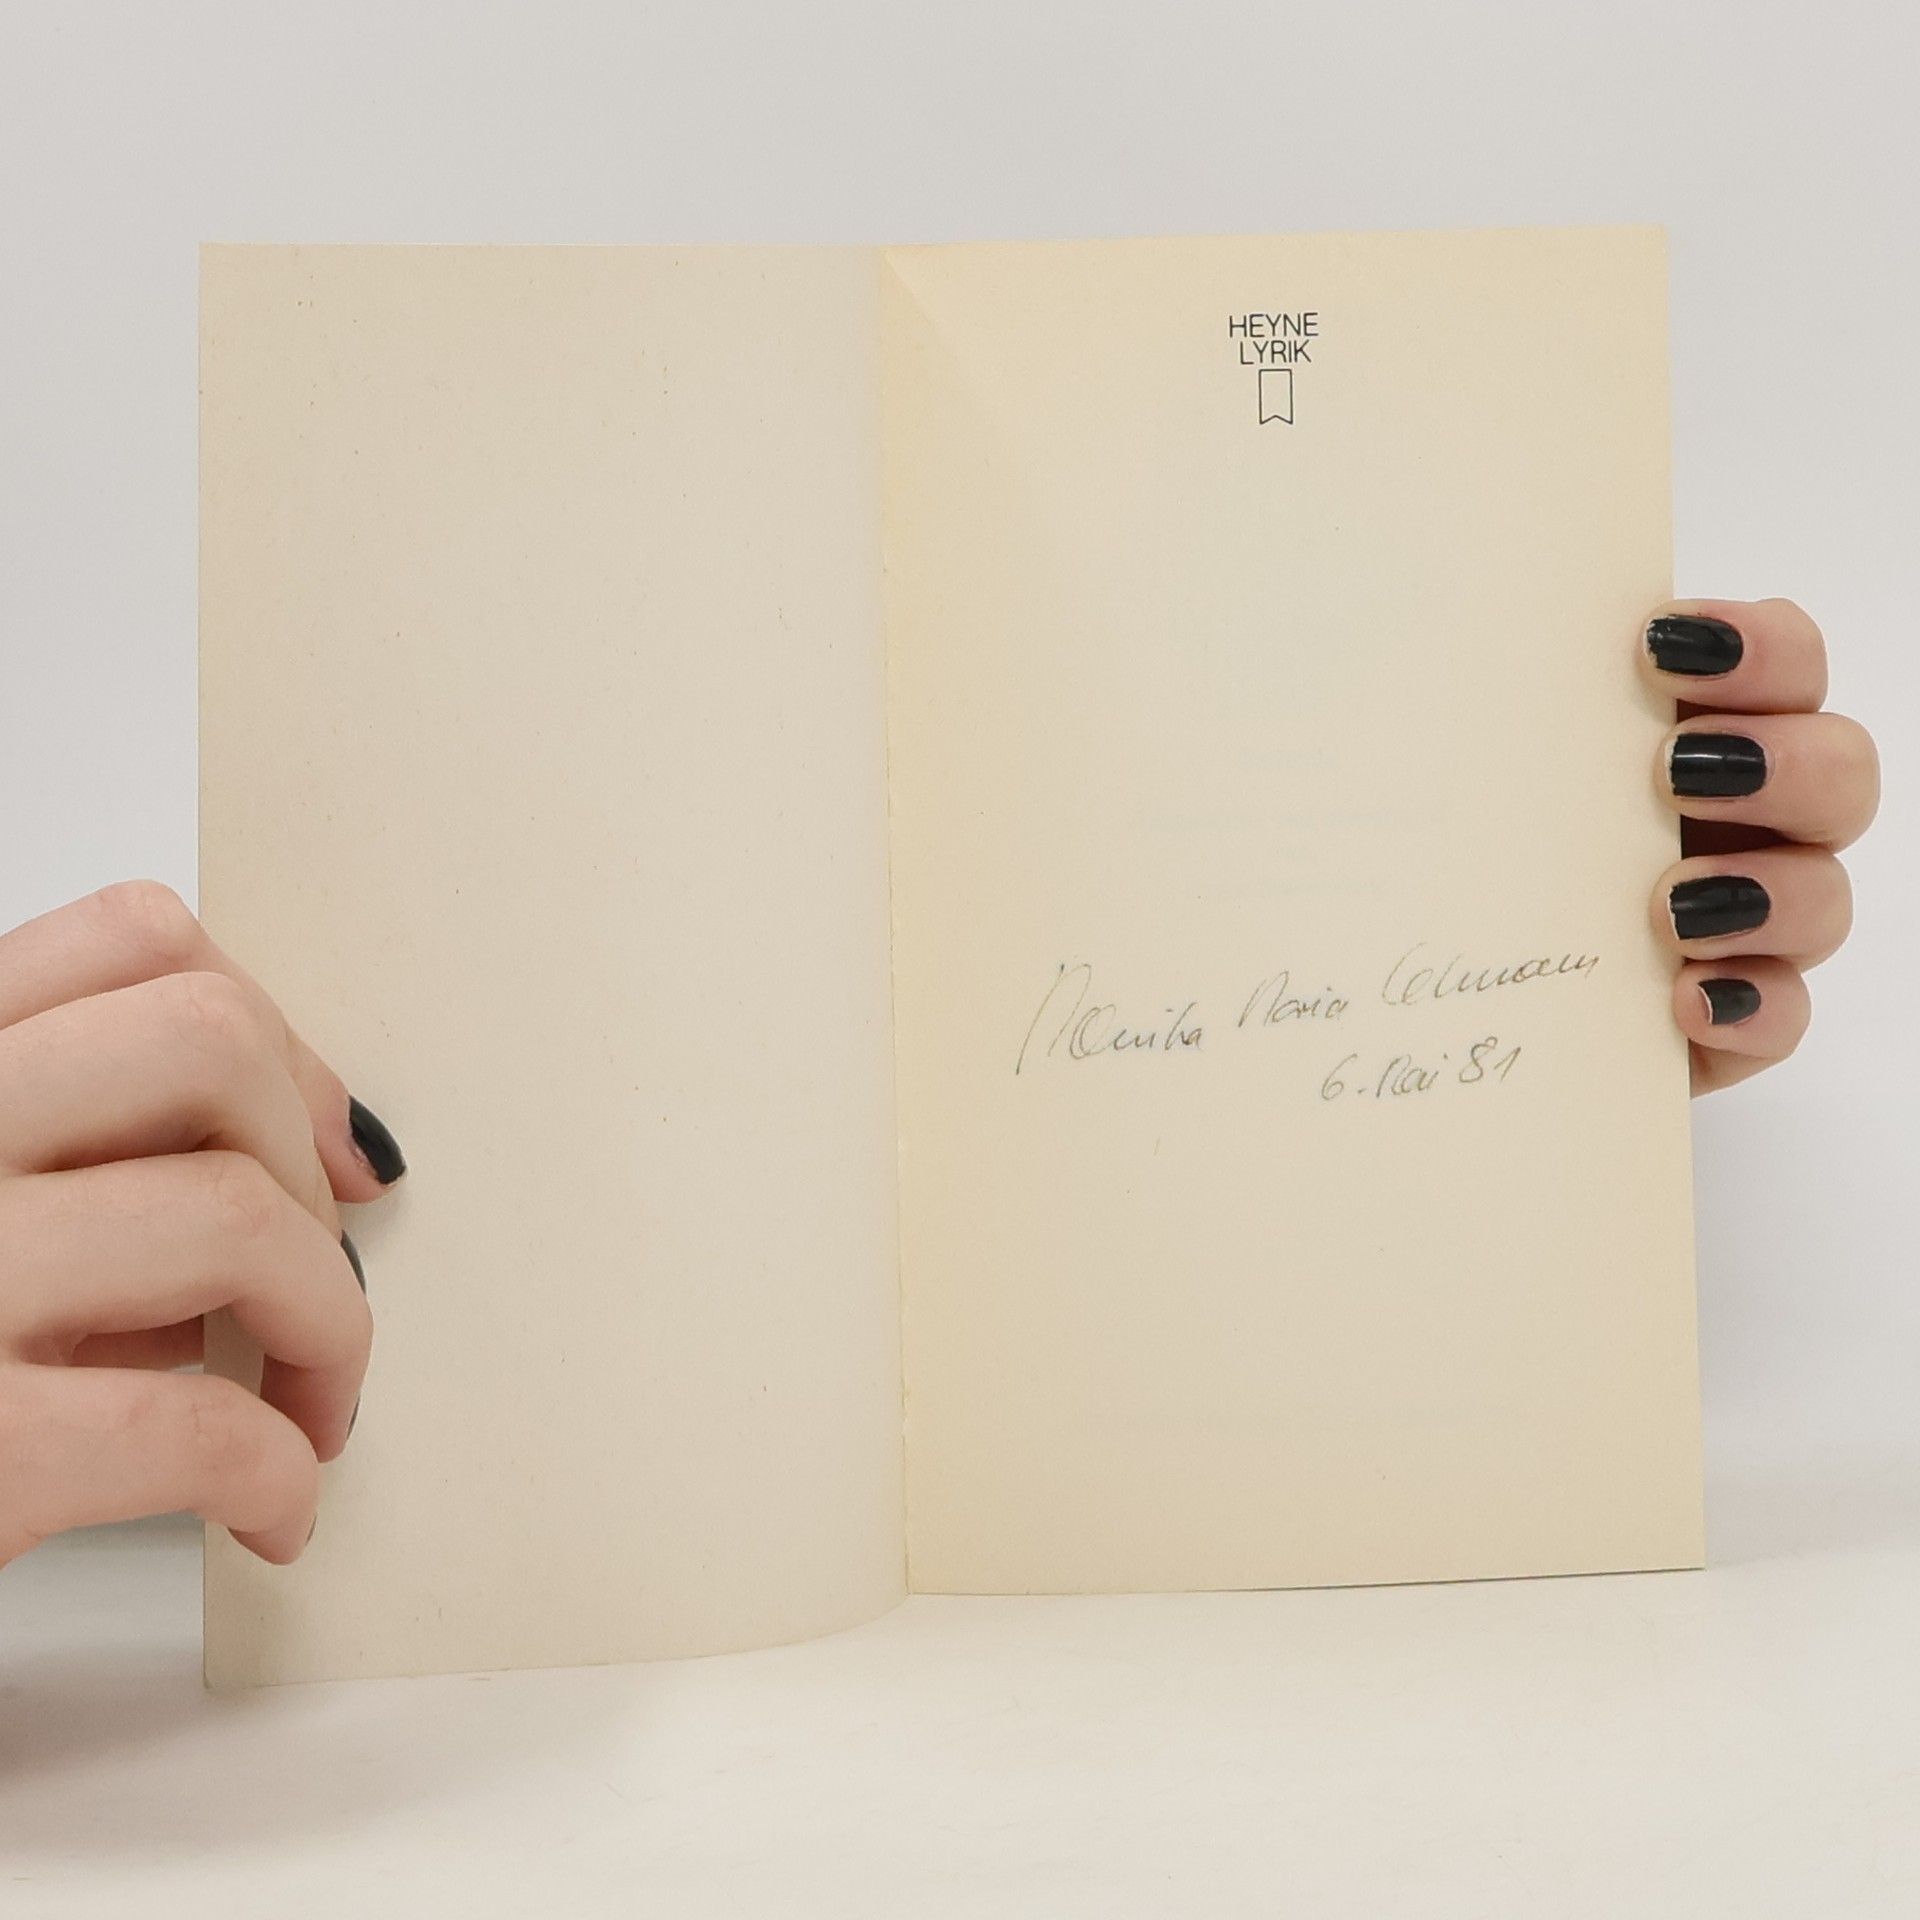 HEYNE
LYRIK
Monika Maria Lehmann
6. Mai 81